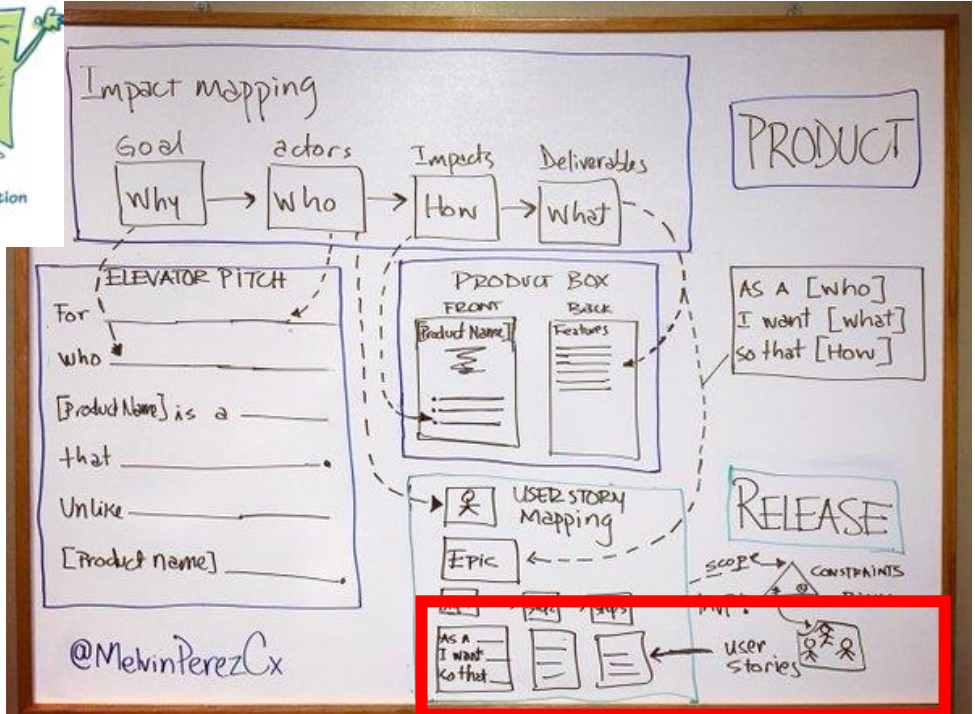 tion
Impact mapping
Goal
Why
actors
Who
Impacts
How
Deliverables
What
PRODUCT
ELEVATOR PITCH
For
who
[Product Name] is a
that
Unlike
[Product name]
PRODUCT BOX
FRONT
[Product Name]
BACK
Features
AS A [Who]
I want [What]
so that [How]
USER STORY
Mapping
Epic
RELEASE
scope
CONSTRAINTS
As A
I want
so that
user
stories
@MelvinPerezCx